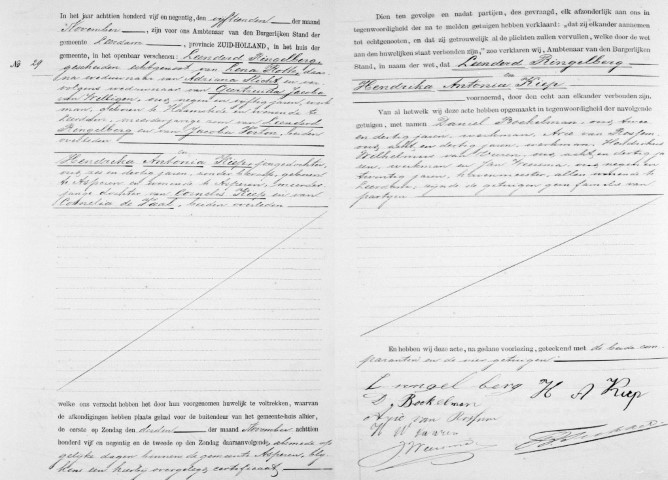 In het jaar achttien honderd vijf en negentig, den vijftienden der maand
November, zijn voor ons Ambtenaar van den Burgerlijken Stand der
gemeente Leerdam, provincie ZUID-HOLLAND, in het huis der
gemeente, in het openbaar verschenen: Leendert Ringelberg
No 29 gescheiden echtgenoot van Lena Both, daar
na weduwnaar van Adriana en ver
volgens weduwnaar van Geertruida Jacoba
van, oud negen en vijftig jaren, werk
man, geboren te en wonende te
Leerdam, meerderjarige zoon van Leendert
Ringelberg en van Jacoba Horton, beiden
overleden
en
Hendrika Antonia Kiep, jongedochter,
oud zes en dertig jaren, zonder beroep, geboren
te Asperen en wonende te Asperen, meerder
jarige dochter van Cornelis Kiep en van
Cornelia de Vaal, beiden overleden
welke ons verzocht hebben het door hun voorgenomen huwelijk te voltrekken, waarvan
de afkondigingen hebben plaats gehad voor de buitendeur van het gemeente-huis alhier,
de eerste op Zondag den derden der maand November achttien
honderd vijf en negentig en de tweede op den Zondag daaraanvolgende, alsmede op
gelijke dagen binnen de gemeente Asperen, blij
kens een hierbij overgelegd certificaat,
Dien ten gevolge en nadat partijen, des gevraagd, elk afzonderlijk aan ons in
tegenwoordigheid der na te melden getuigen hebben verklaard: „dat zij elkander aannemen
tot echtgenooten, en dat zij getrouwelijk al de plichten zullen vervullen, welke door de wet
aan den huwelijken staat verbonden zijn,” zoo verklaren wij, Ambtenaar van den Burgerlijken
Stand, in naam der wet, dat Leendert Ringelberg
en
Hendrika Antonia Kiep
voornoemd, door den echt aan elkander verbonden zijn.
Van al hetwelk wij deze acte hebben opgemaakt in tegenwoordigheid der navolgende
getuigen, met namen Daniel Boekelman, oud twee
en dertig jaren, werkman, Arie van Rossem
oud acht en dertig jaren, werkman, Hendrikus
Wilhelmus van Buren, oud acht en dertig ja
ren, werkman en Jan, oud negen en
twintig jaren, allen wonende te
Leerdam, zijnde de getuigen geen familie van
partijen
En hebben wij deze acte, na gedane voorlezing, geteekend met de beide com
paranten en de vier getuigen
L ringelberg H A Kiep
D. Boekelman
Arie van Rossem
H W
J